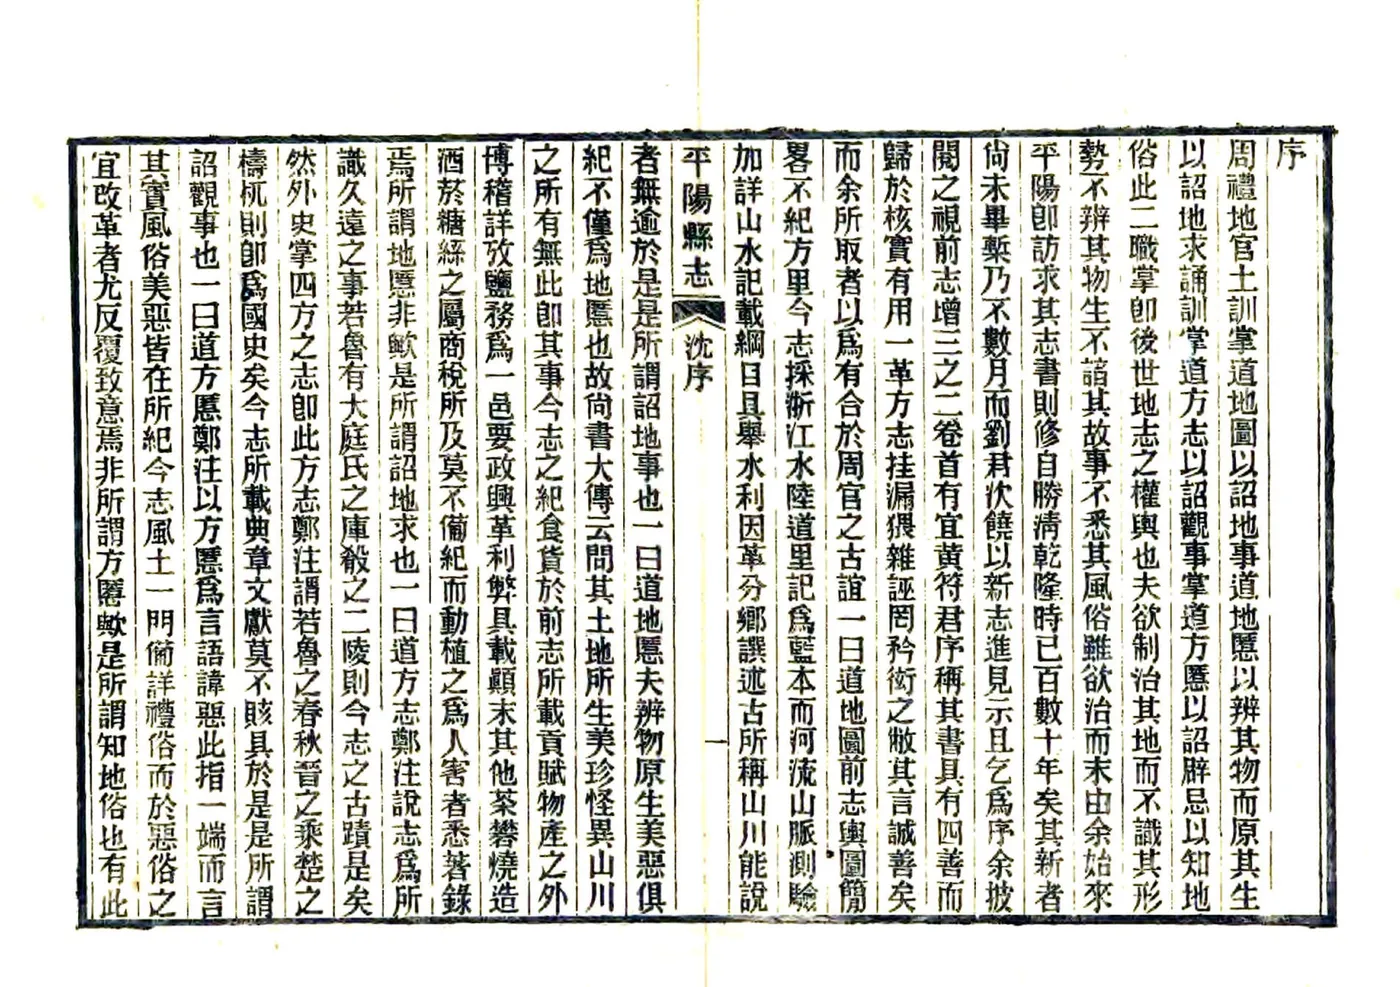 序
周禮地官土訓掌道地圖以詔地事道地慝以辨其物而原其生
以詔地求誦訓掌道方志以詔觀事掌道方慝以詔辟忌以知地
俗此二職掌卽後世地志之權輿也夫欲制治其地而不識其形
勢不辨其物生不諳其故事不悉其風俗雖欲治而末由余始來
平陽卽訪求其志書則修自勝淸乾隆時已百數十年矣其新者
尙未畢槧乃不數月而劉君次饒以新志進見示且乞爲序余披
閱之視前志增三之二卷首有宜黃符君序稱其書具有四善而
歸於核實有用一革方志挂漏猥雜誣罔矜衒之敝其言誠善矣
而余所取者以爲有合於周官之古誼一曰道地圖前志輿圖簡
畧不紀方里今志採浙江水陸道里記爲藍本而河流山脈測驗
加詳山水記載綱目具舉水利因革分鄉譔述古所稱山川能說
平陽縣志
沈序
一
者無逾於是是所謂詔地事也一曰道地慝夫辨物原生美惡俱
紀不僅爲地慝也故尙書大傳云問其土地所生美珍怪異山川
之所有無此卽其事今志之紀食貨於前志所載貢賦物產之外
博稽詳攷鹽務爲一邑要政興革利弊具載顚末其他茶礬燒造
酒菸糖絲之屬商稅所及莫不備紀而動植之爲人害者悉著錄
焉所謂地慝非歟是所謂詔地求也一曰道方志鄭注說志爲所
識久遠之事若魯有大庭氏之庫殽之二陵則今志之古蹟是矣
然外史掌四方之志卽此方志鄭注謂若魯之春秋晉之乘楚之
檮杌則卽爲國史矣今志所載典章文獻莫不賅具於是是所謂
詔觀事也一曰道方慝鄭注以方慝爲言語諱惡此指一端而言
其實風俗美惡皆在所紀今志風土一門備詳禮俗而於惡俗之
宜改革者尤反覆致意焉非所謂方慝歟是所謂知地俗也有此